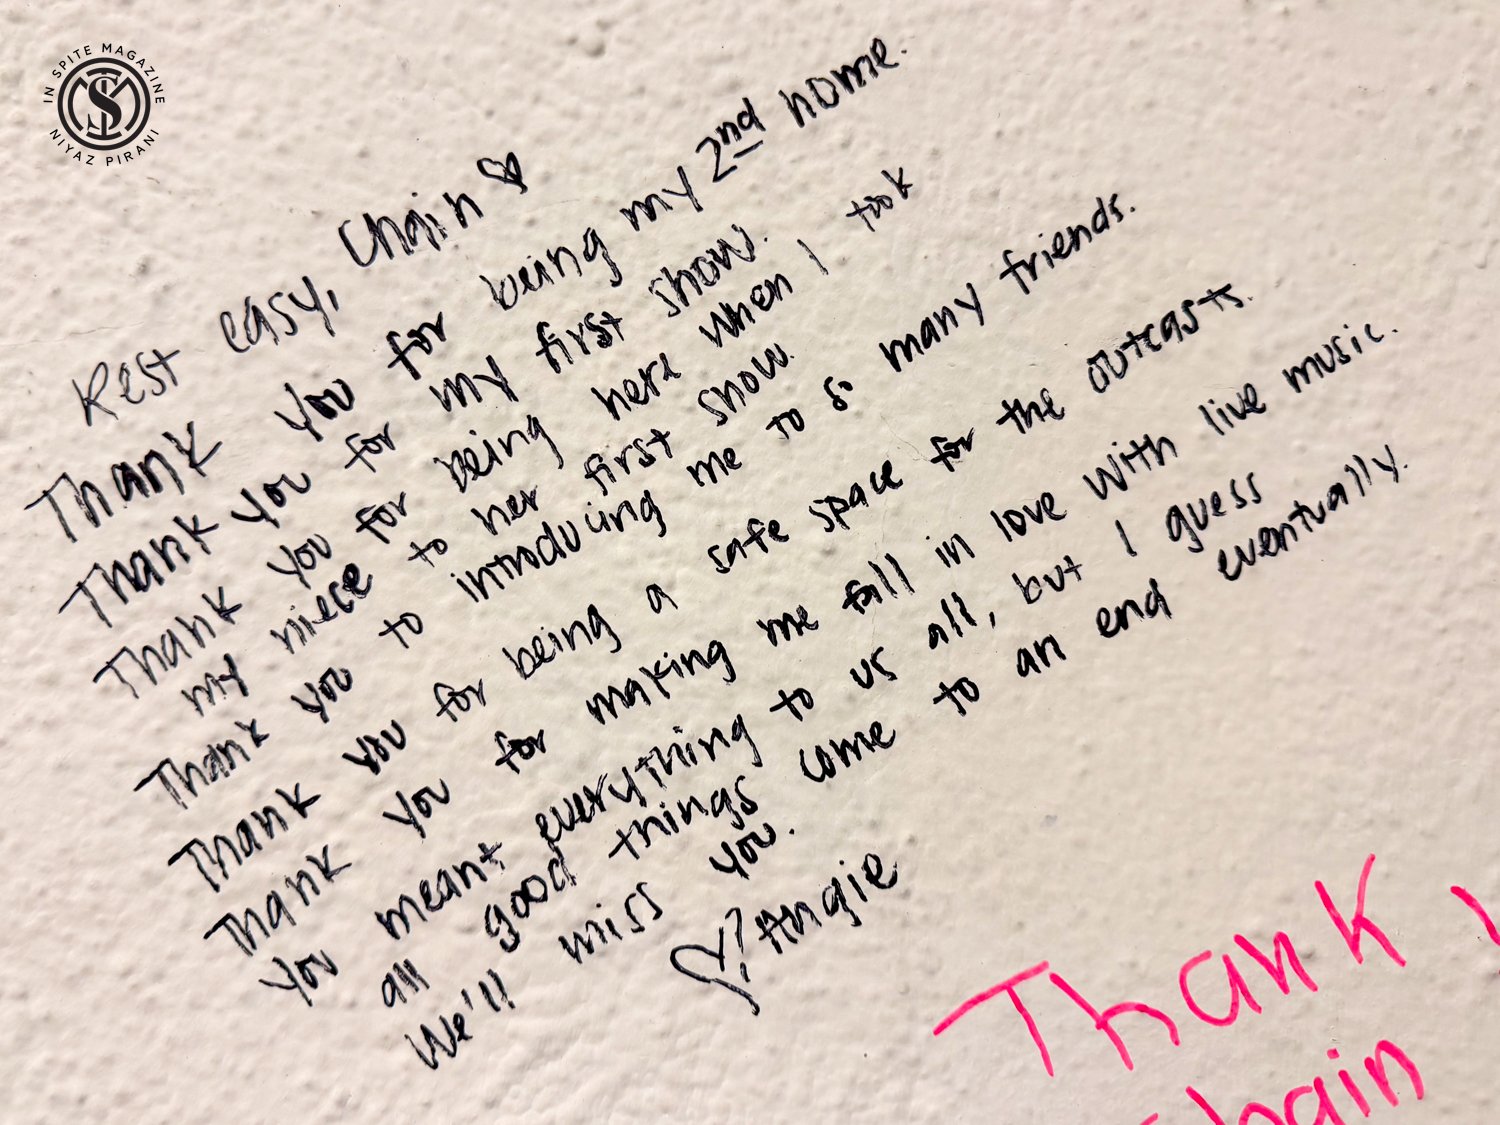 IN SPITE MAGAZINE
NIYAZ PIRANI
Rest easy, Chain ♡
Thank you for being my 2nd home.
Thank you for my first show.
Thank you for being here when I took
my niece to her first show.
Thank you to introducing me to so many friends.
Thank you for being a safe space for the outcasts.
Thank you for making me fall in love with live music.
You meant everything to us all, but I guess
all good things come to an end eventually.
We'll miss you.
♡ Angie
Thank
hain